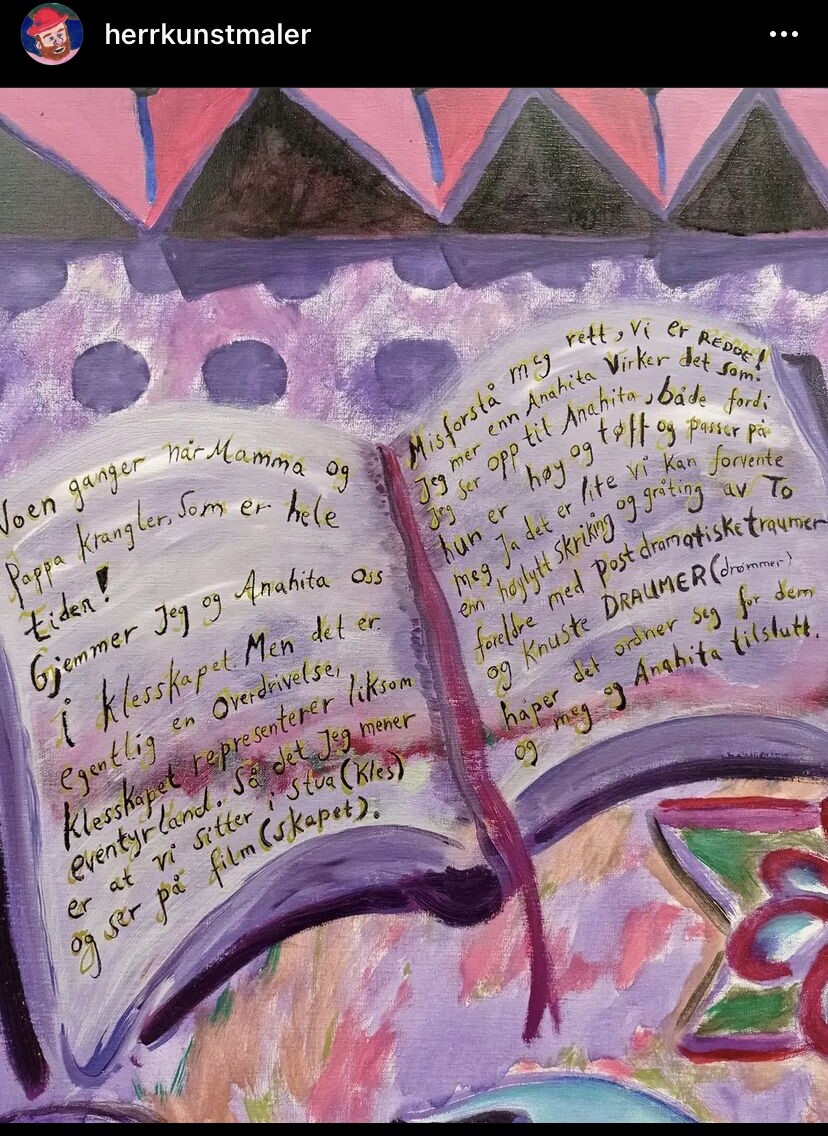 herrkunstmaler
Noen ganger når Mamma og
Pappa krangler, Som er hele
tiden!
Gjemmer Jeg og Anahita oss
i klesskapet. Men det er
egentlig en Overdrivelse,
Klesskapet representerer liksom
eventyrland. Så det Jeg mener
er at vi sitter i stua (kles)
og ser på film (skapet).
Misforstå meg rett, vi er REDDE!
Jeg mer enn Anahita Virker det som.
Jeg ser opp tit Anahita, både fordi
hun er høy og tøff og passer på
meg Ja det er lite vi kan forvente
enn høylytt skriking og gråting av To
foreldre med postdramatisketraumer
og Knuste DRAUMER (drømmer)
håper det ordner seg for dem
og meg og Anahita tilslutt.